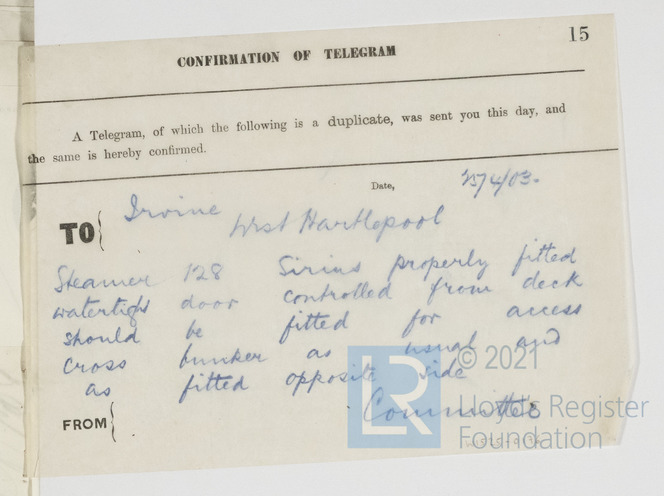 15
CONFIRMATION OF TELEGRAM
A Telegram, of which the following is a duplicate, was sent you this day, and
the same is hereby confirmed.
Date, 25/4/03.
TO { Irvine
West Hartlepool
Steamer 128 Sirius properly fitted
watertight door controlled from deck
should be fitted for access
cross bunker as usual and
as fitted opposite side
Committee
FROM {
LR
© 2021
Lloyd's Register
Foundation